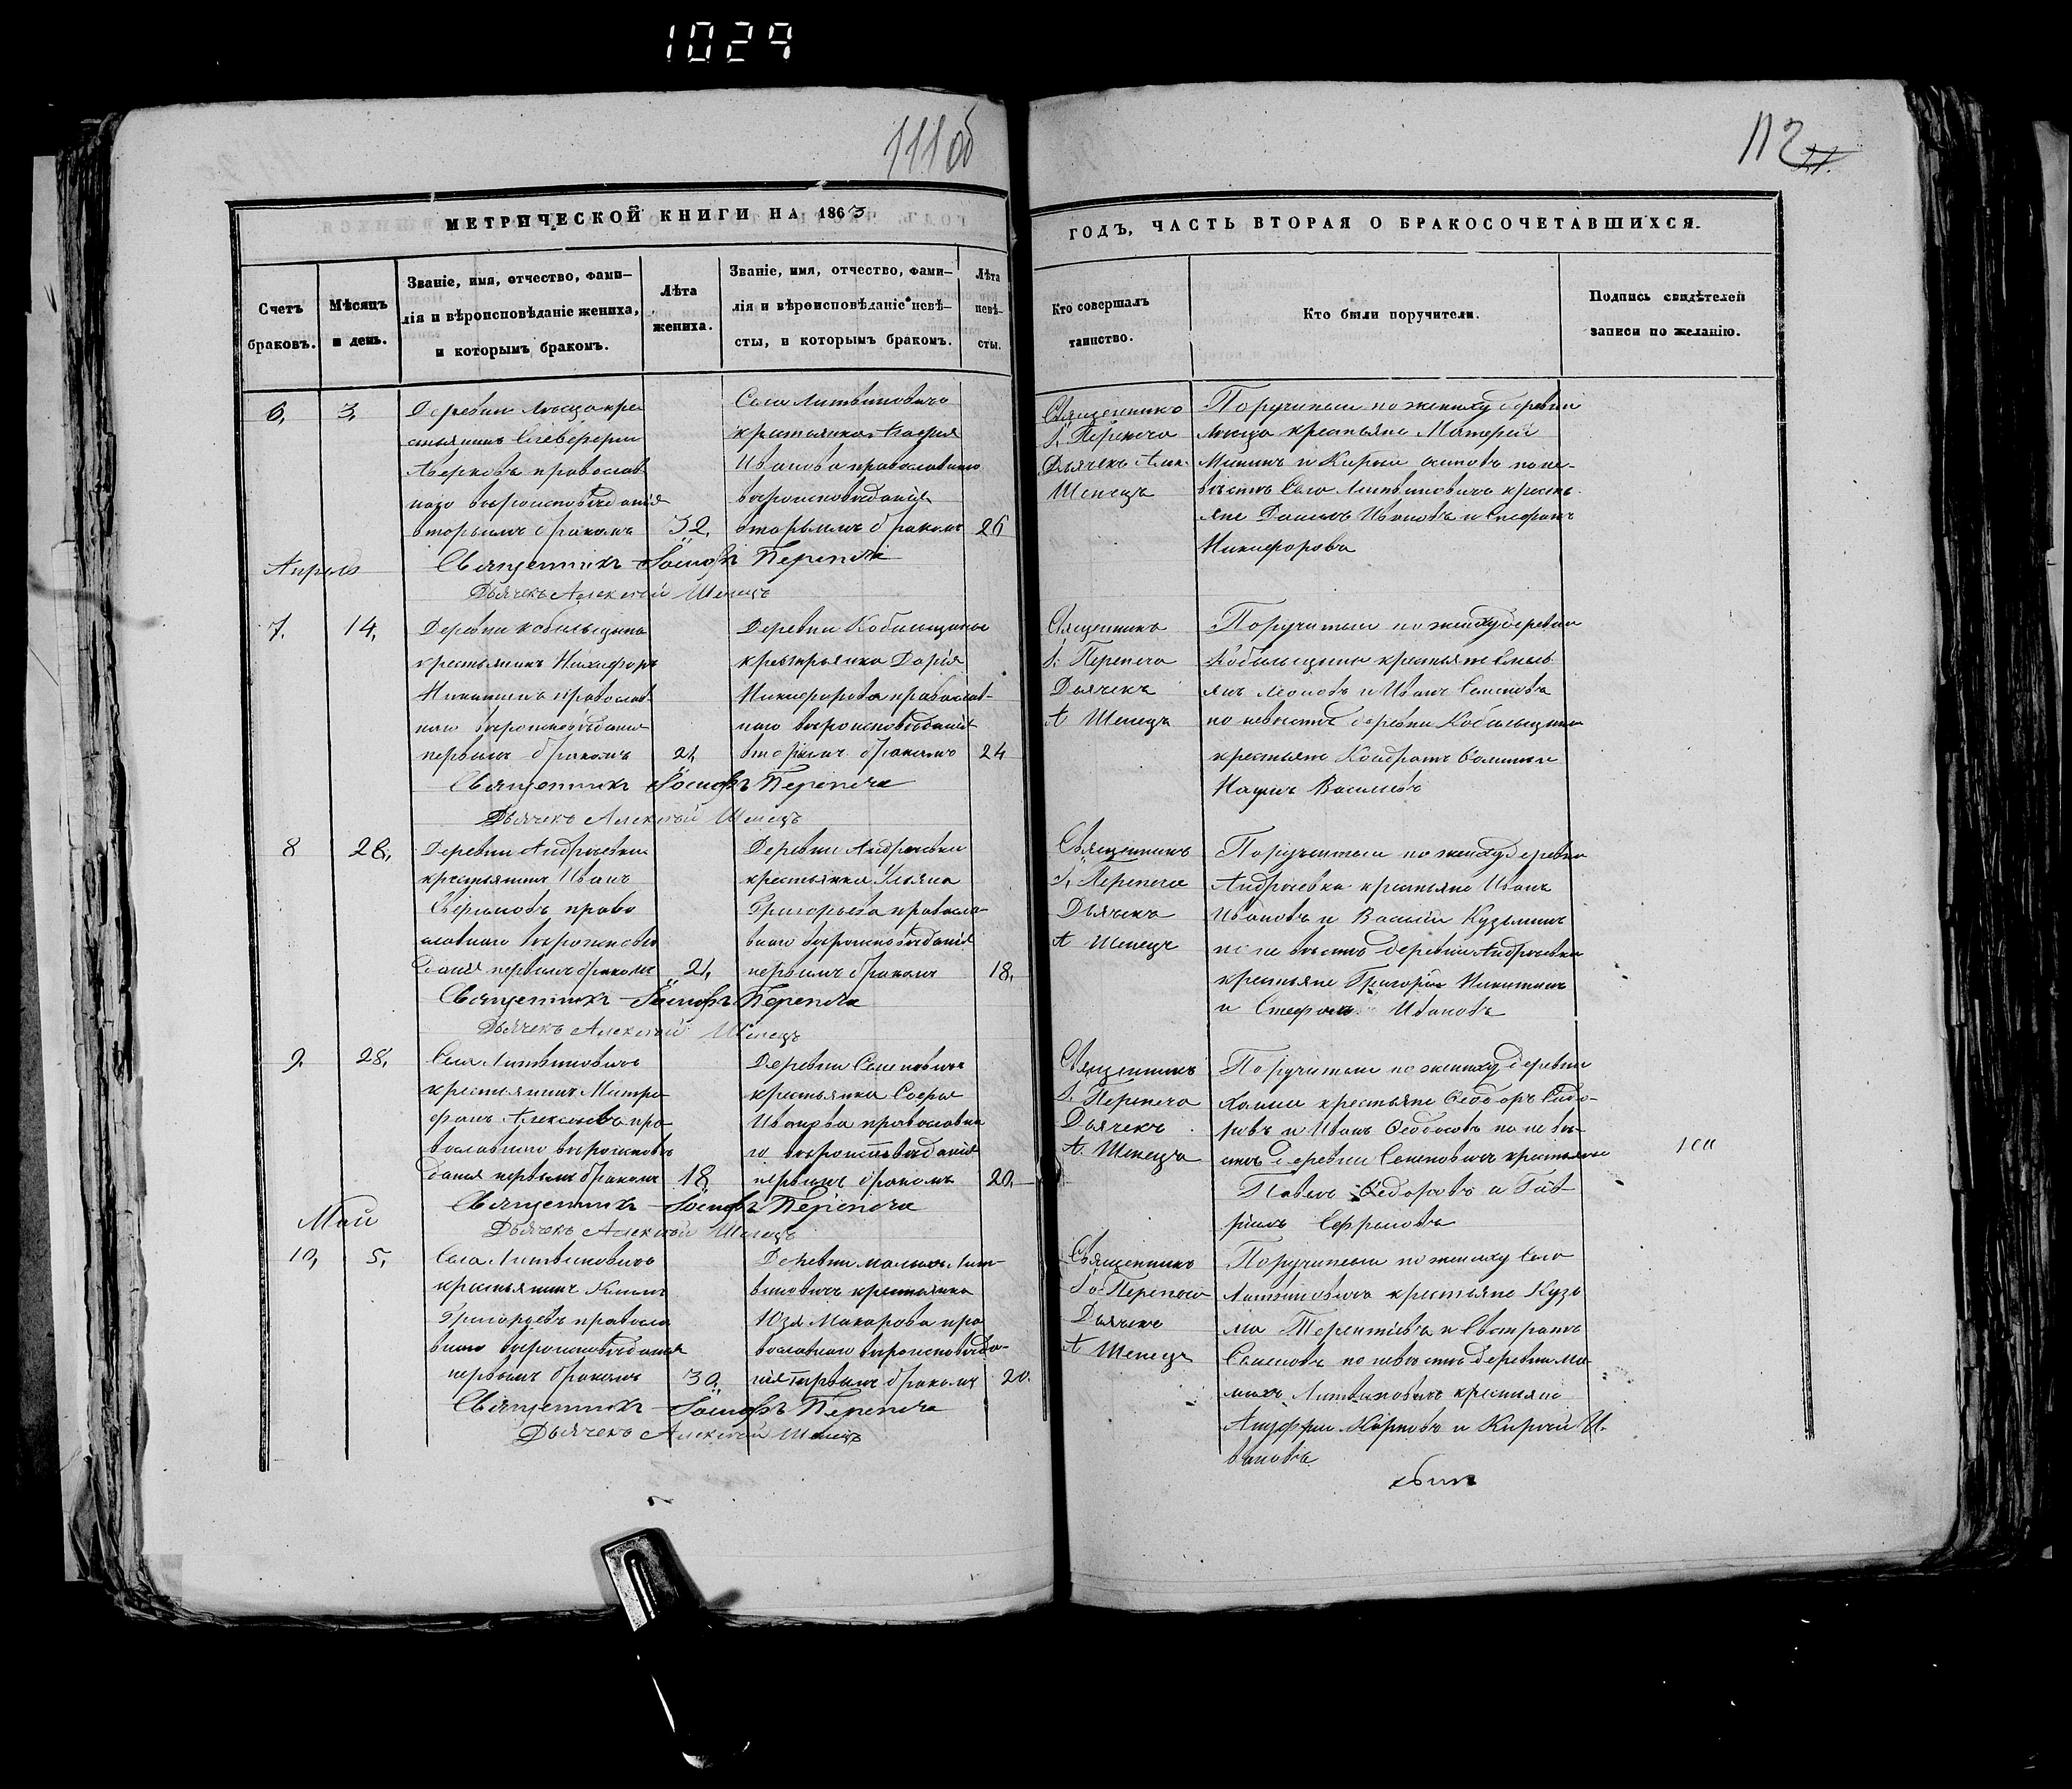 1029
111 об
112
21.
МЕТРИЧЕСКОЙ КНИГИ НА 1863
ГОДЪ, ЧАСТЬ ВТОРАЯ О БРАКОСОЧЕТАВШИХСЯ.
Счетъ
браковъ.
Мѣсяцъ
и день.
Званіе, имя, отчество, фами-
лія и вѣроисповѣданіе жениха,
и которымъ бракомъ.
Лѣта
жениха.
Званіе, имя, отчество, фами-
лія и вѣроисповѣданіе невѣ-
сты, и которымъ бракомъ.
Лѣта
невѣ-
сты.
Кто совершалъ
таинство.
Кто были поручители.
Подпись свидѣтелей
записи по желанію.
6, 3,
Деревни кре
стьянинъ
Аверковъ православ
наго вѣроисповѣданія
вторымъ бракомъ 32,
Села Литвиновичъ
крестьянка
Иванова православнаго
вѣроисповѣданія
вторымъ бракомъ 26
Священникъ
І, Перепеча
Дьячекъ Алек.
Шепецъ
Поручители по жениху деревни
крестьяне
Мининъ и по не-
вѣстѣ Села Литвиновичъ кресть
яне Ивановъ и Стефанъ
Никифоровъ
Священникъ Іосифъ Перепеча
Дьячекъ Алексѣй Шепецъ
Апрель
7. 14,
Деревни Кобыльщины
крестьянинъ Никифоръ
Никитинъ православ
наго вѣроисповѣданія
первымъ бракомъ 21,
Деревни Кобыльщины
крестьянка Дарія
Никифорова православ-
наго вѣроисповѣданія
вторымъ бракомъ 24
Священникъ
І: Перепеча
Дьячекъ
А Шепецъ
Поручители по жениху деревни
Кобыльщины крестьяне Емель
янъ Леоновъ и Иванъ Семеновъ
по невѣстѣ деревни Кобыльщины
крестьяне Кондратъ и
Наумъ Васильевъ
Священникъ Іосифъ Перепеча
Дьячекъ Алексѣй Шепецъ
8 28,
Деревни Андреевки
крестьянинъ Иванъ
право
славнаго вѣроисповѣ
данія первымъ бракомъ 21,
Деревни Андреевки
крестьянка Ульяна
Григорьева правосла-
внаго вѣроисповѣданія
первымъ бракомъ 18,
Священникъ
І, Перепеча
Дьячекъ
А Шепецъ
Поручители по жениху деревни
Андреевка крестьяне Иванъ
Ивановъ и Василій Кузьминъ
по невѣстѣ деревни Андреевки
крестьяне Григорій Никитинъ
и Стефанъ Ивановъ
Священникъ Іосифъ Перепеча
Дьячекъ Алексѣй Шепецъ
9. 28,
Села Литвиновичъ
крестьянинъ Митро
фанъ Алексѣевъ пра
вославнаго вѣроисповѣ
данія первымъ бракомъ 18
Деревни Семеновичъ
крестьянка Софія
Иванова православна
го вѣроисповѣданія
первымъ бракомъ 20,
Священникъ
І. Перепеча
Дьячекъ
А. Шепецъ
Поручители по жениху деревни
крестьяне Ѳеодоръ Сидо-
ровъ и Иванъ по невѣ-
стѣ деревни Семеновичъ крестьяне
Павелъ Ѳедоровъ и Гав
рілъ Ефремовъ
Священникъ Іосифъ Перепеча
Дьячекъ Алексѣй Шепецъ
Май
10, 5,
Села Литвиновичъ
крестьянинъ
Григорьевъ правосла
внаго вѣроисповѣданія
первымъ бракомъ 30,
Деревни малыхъ Лит-
виновичъ крестьянка
Юзя Макарова пра
вославнаго вѣроисповѣда-
нія первымъ бракомъ 20.
Священникъ
Іо: Перепеча
Дьячекъ
А Шепецъ
Поручители по жениху Села
Литвиновичъ крестьяне Кузь
ма Терентіевъ и Евстратъ
Семеновъ по невѣстѣ деревни Ма-
лыхъ Литвиновичъ крестьяне
Карповъ и И-
вановъ
Священникъ Іосифъ Перепеча
Дьячекъ Алексѣй Шепецъ